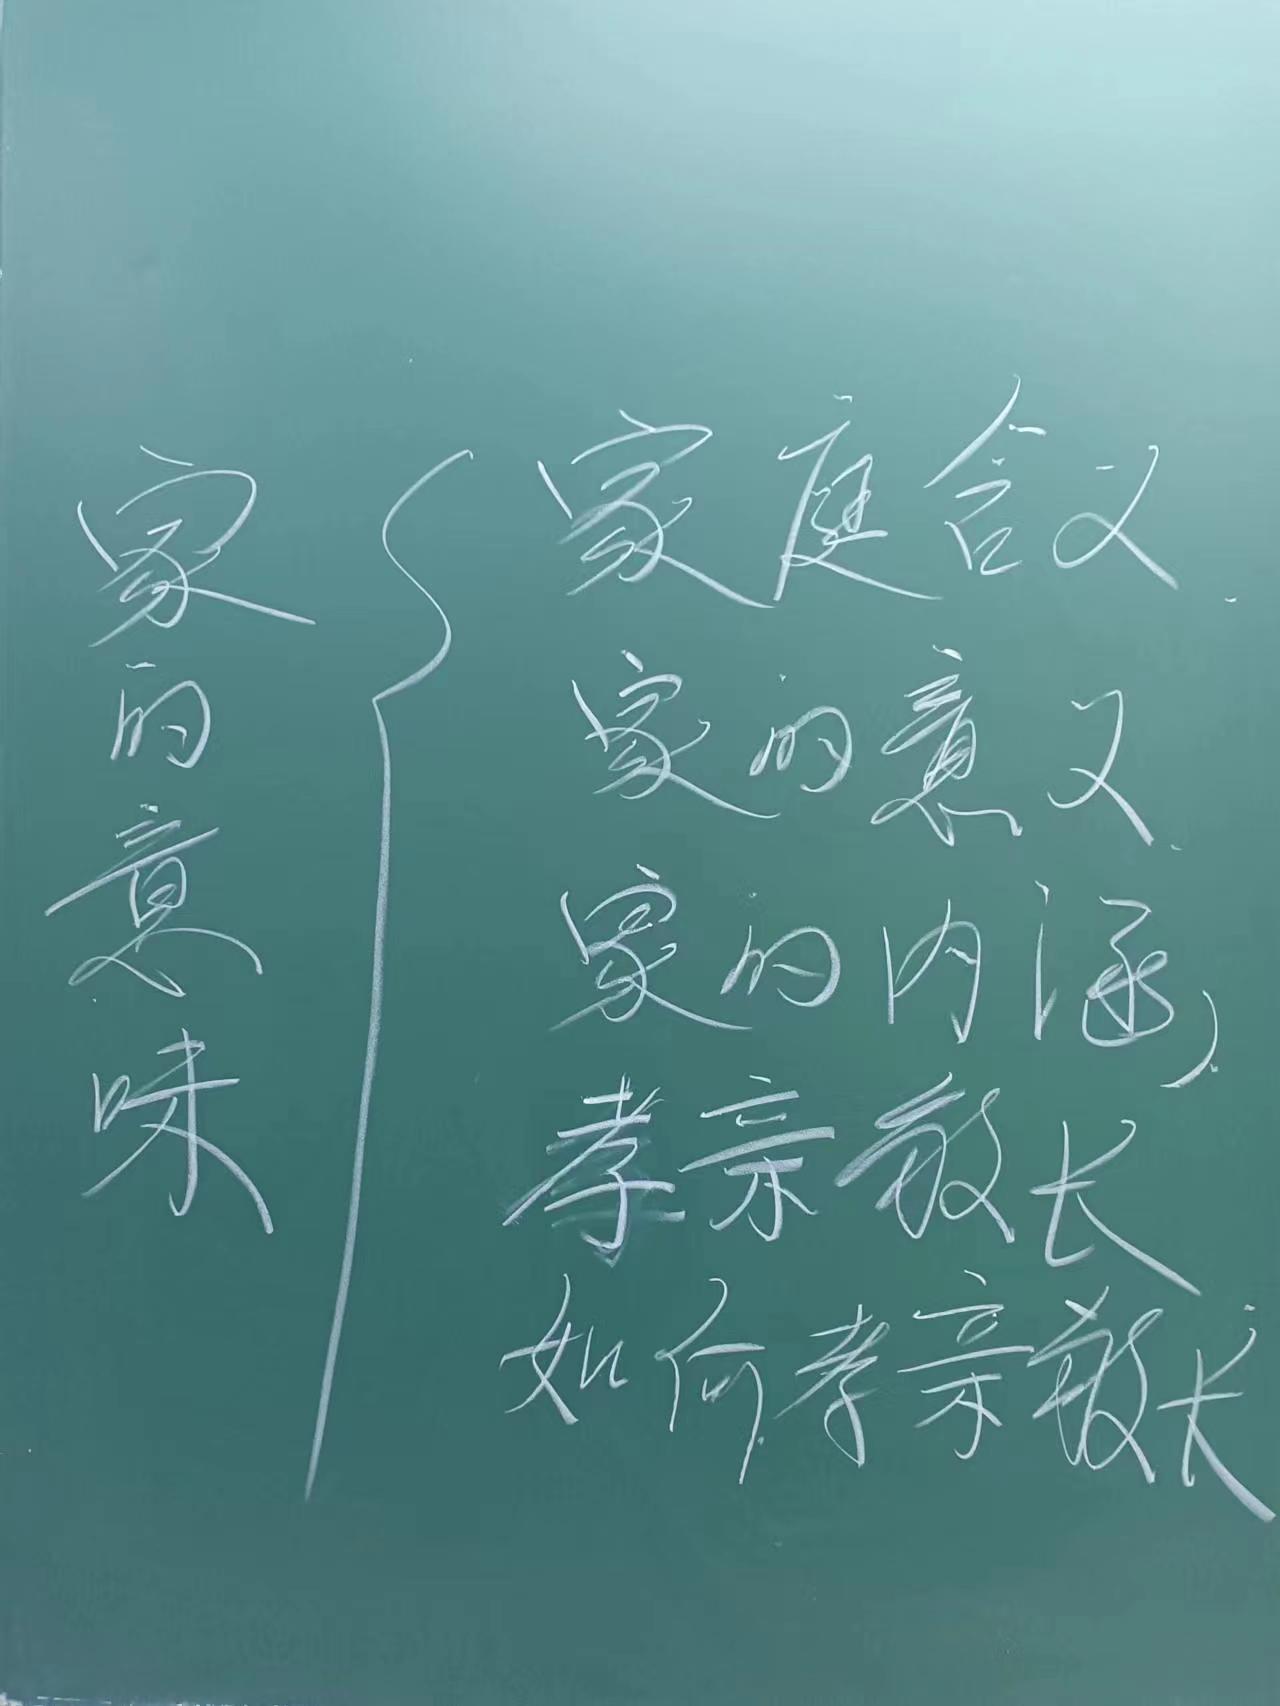 家的意味
家庭含义
家的意义
家的内涵,
孝亲敬长
如何孝亲敬长